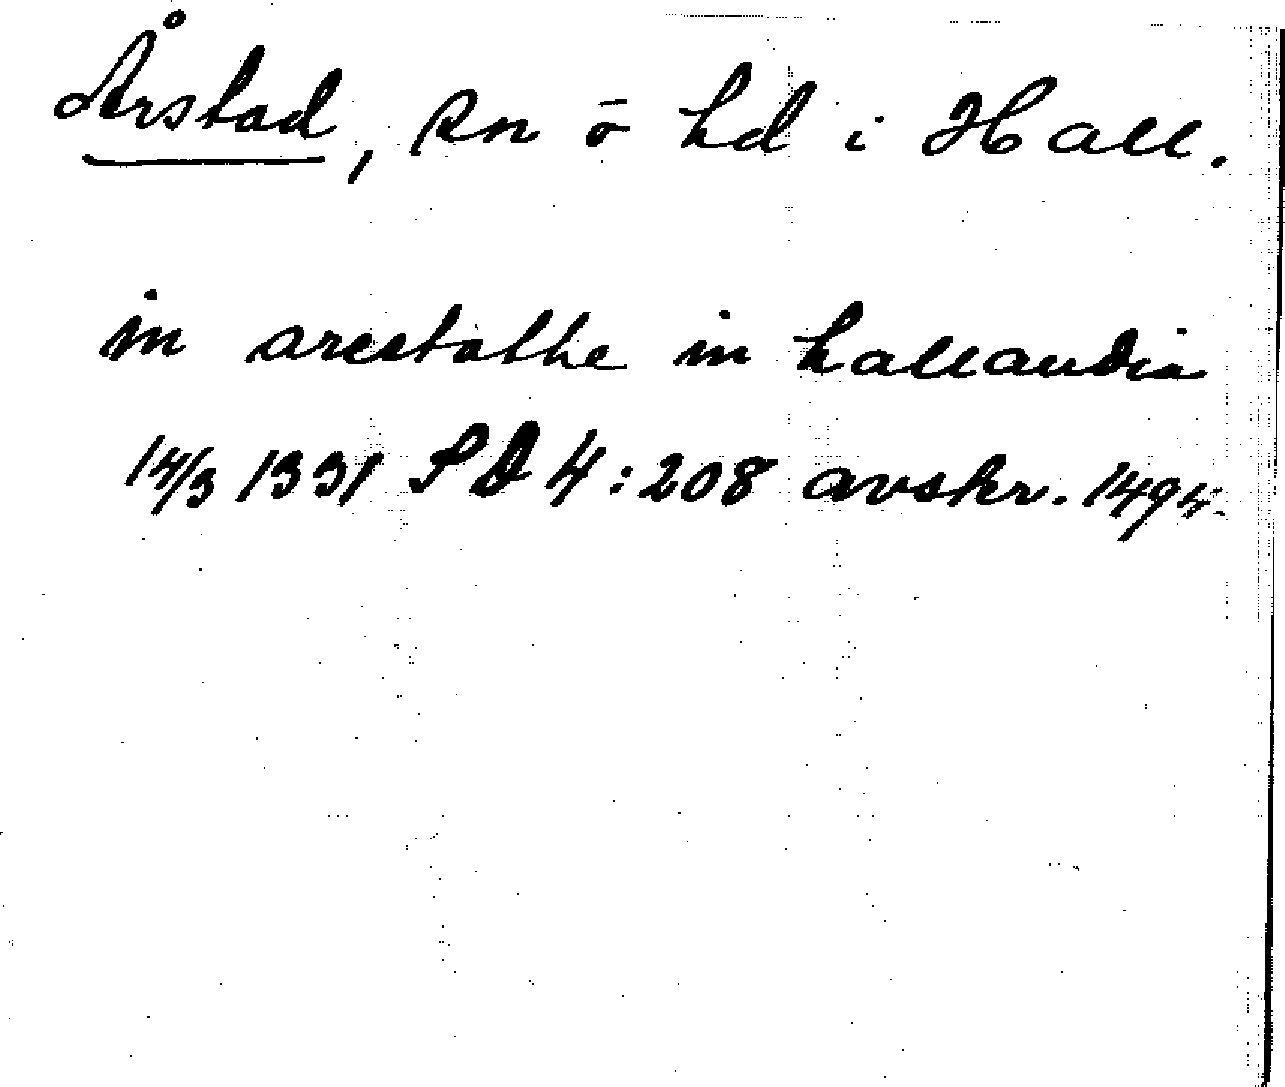 Årstad, sn o hd i Hall.
in arestathe in hallandia
14/3 1331 SD 4:208 avskr. 1494